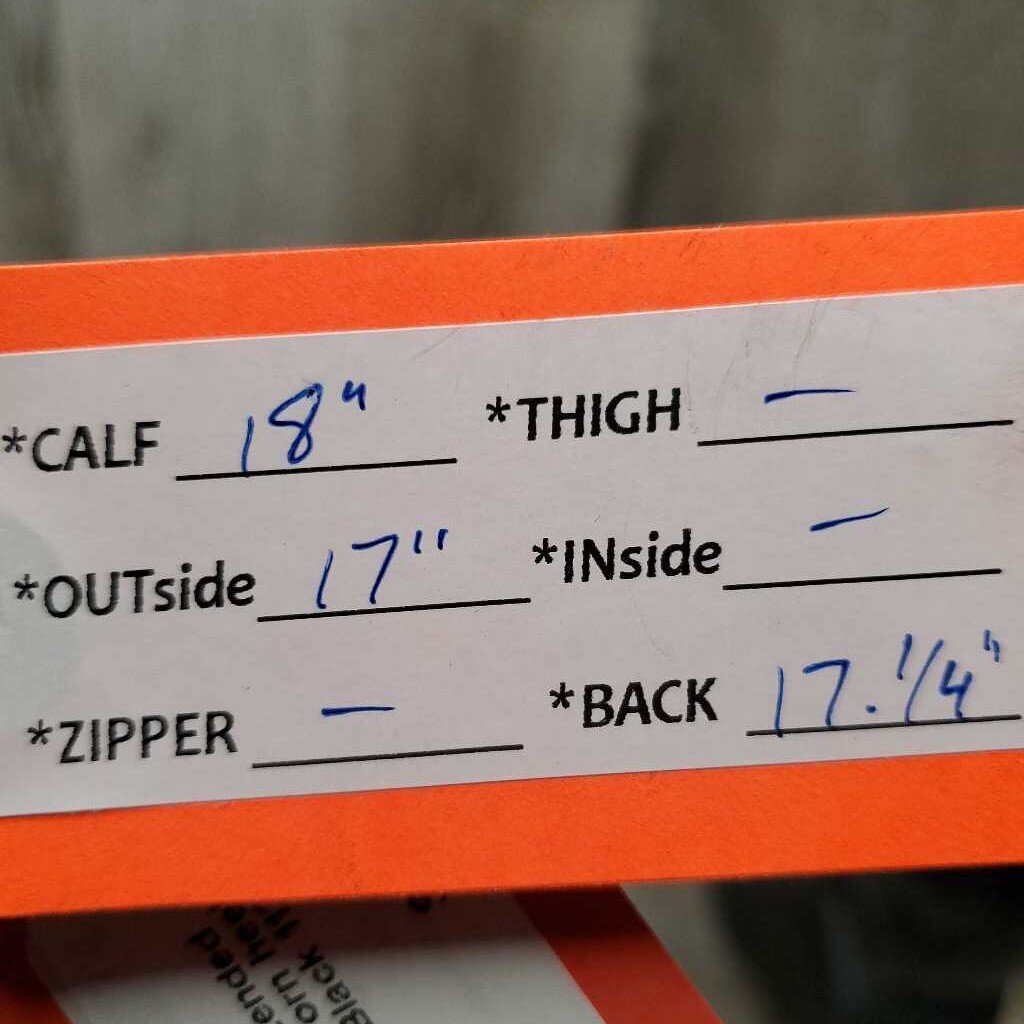 *CALF 18" *THIGH –
*OUTside 17" *INside –
*ZIPPER – *BACK 17.1/4"
Black